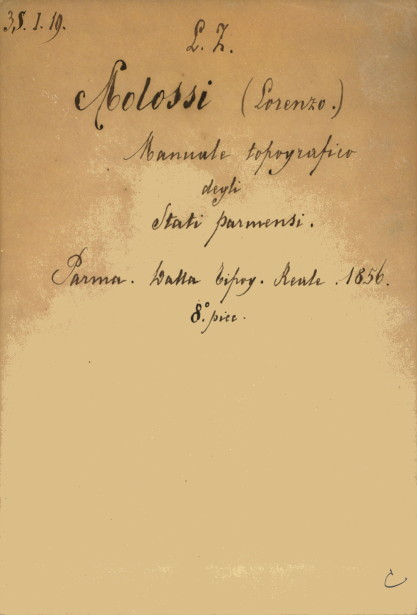 3,8. I. 19.
L. Z.
Molossi (Lorenzo.)
Manuale topografico
degli
Stati parmensi.
Parma. Dalla tipog. Reale. 1856.
8.° picc.